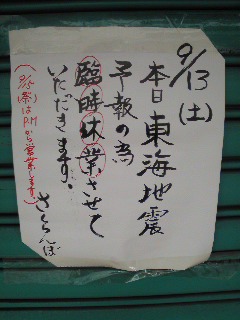 9/13(土)
本日東海地震
予報の為
臨時休業させて
いただきます。
さくらんぼ
祭)はP.Mから営業します。)